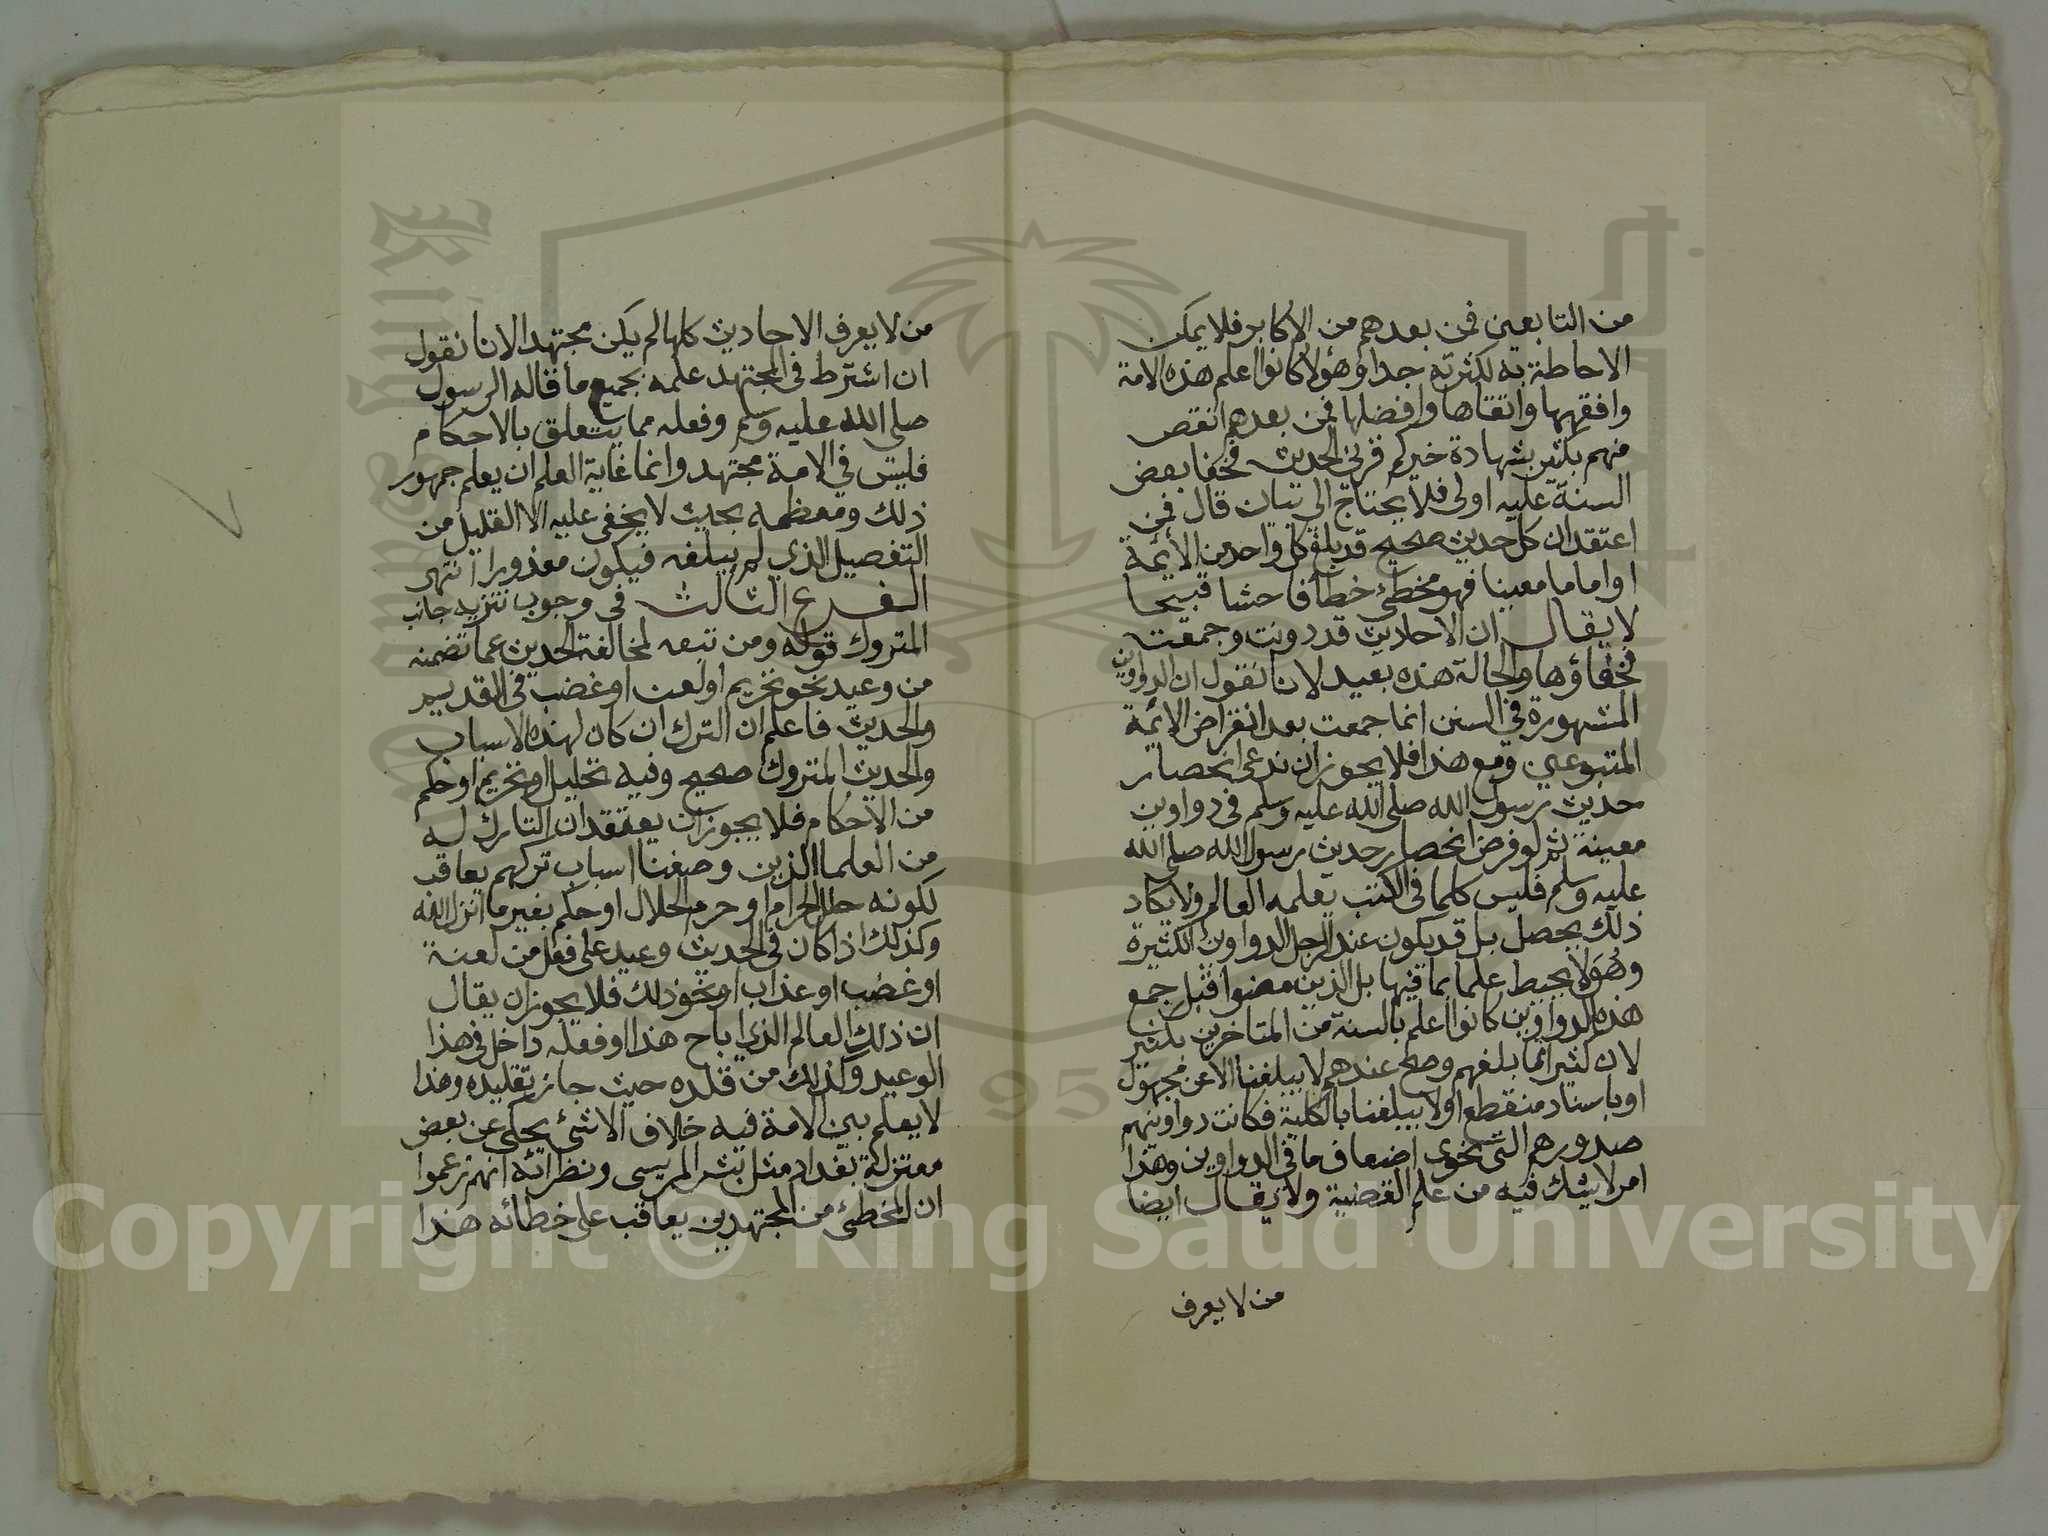 من التابعين فمن بعدهم من الاكابر فلا يمكن
الاحاطة به لكثرته جدا وهؤلاء كانوا اعلم هذه الامة
وافقهها واتقاها وافضلها فمن بعدهم انقص
منهم بكثير بشهادة خيركم قرني الحديث فخفا بعض
السنة عليه اولى فلا يحتاج الى بيان قال فمن
اعتقد ان كل حديث صحيح قد بلغ كل واحد من الأيمة
او اماما معينا فهو مخطئ خطأ فاحشا قبيحا
لا يقال ان الاحاديث قد دونت وجمعت
فخفاؤها والحالة هذه بعيد لانا نقول ان الدواوين
المشهورة في السنن انما جمعت بعد انقراض الأئمة
المتبوعين ومع هذا فلا يجوز ان ندعي انحصار
حديث رسول الله صلى الله عليه وسلم في دواوين
معينة ثم لو فرض انحصار حديث رسول الله صلى الله
عليه وسلم فليس كلما في الكتب يعلمه العالم ولا يكاد
ذلك يحصل بل قد يكون عند الرجل الدواوين الكثيرة
وهو لا يحيط علما بما فيها بل الذين مضوا قبل جمع
هذه الدواوين كانوا اعلم بالسنة من المتاخرين بكثير
لان كثيرا مما بلغهم وصح عندهم لا يبلغنا الا عن مجهول
او باسناد منقطع او لا يبلغنا بالكلية فكانت دواوينهم
صدورهم التي تحوى اضعاف ما في الدواوين وهذا
امر لا يشك فيه من علم القضية ولا يقال ايضا
من لا يعرف
من لا يعرف الاحاديث كلها لم يكن مجتهد الانا نقول
ان اشترط في المجتهد علمه بجميع ما قاله الرسول
صلى الله عليه وسلم وفعله مما يتعلق بالاحكام
فليس في الامة مجتهد وانما غاية العلم ان يعلم جمهور
ذلك ومعظمه بحيث لا يخفى عليه الا القليل من
التفصيل الذي لم يبلغه فيكون معذورا انتهى
الفرع الثالث في وجوب تنزيه جانب
المتروك قوله ومن تبعه لمخالفة الحديث عما تضمنه
من وعيد نحو تحريم او لعن او غضب في القديم
والحديث فاعلم ان الترك ان كان لهذه الاسباب
والحديث المتروك صحيح وفيه تحليل او تحريم او حكم
من الاحكام فلا يجوز ان يعتقد ان التارك له
من العلما الذين وصفنا اسباب تركهم يعاقب
لكونه حلل الحرام او حرم الحلال او حكم بغير ما انزل الله
وكذلك اذا كان في الحديث وعيد على فعل من لعنة
او غضب او عذاب او نحو ذلك فلا يجوز ان يقال
ان ذلك العالم الذي اباح هذا او فعله داخل في هذا
الوعيد وكذلك من قلده حيث جاز تقليده وهذا
لا يعلم بين الامة فيه خلاف الا شئ يحكى عن بعض
معتزلة بغداد مثل بشر المريسي ونظرائه انهم زعموا
ان المخطئ من المجتهدين يعاقب على خطائه هذا
Copyright © King Saud University